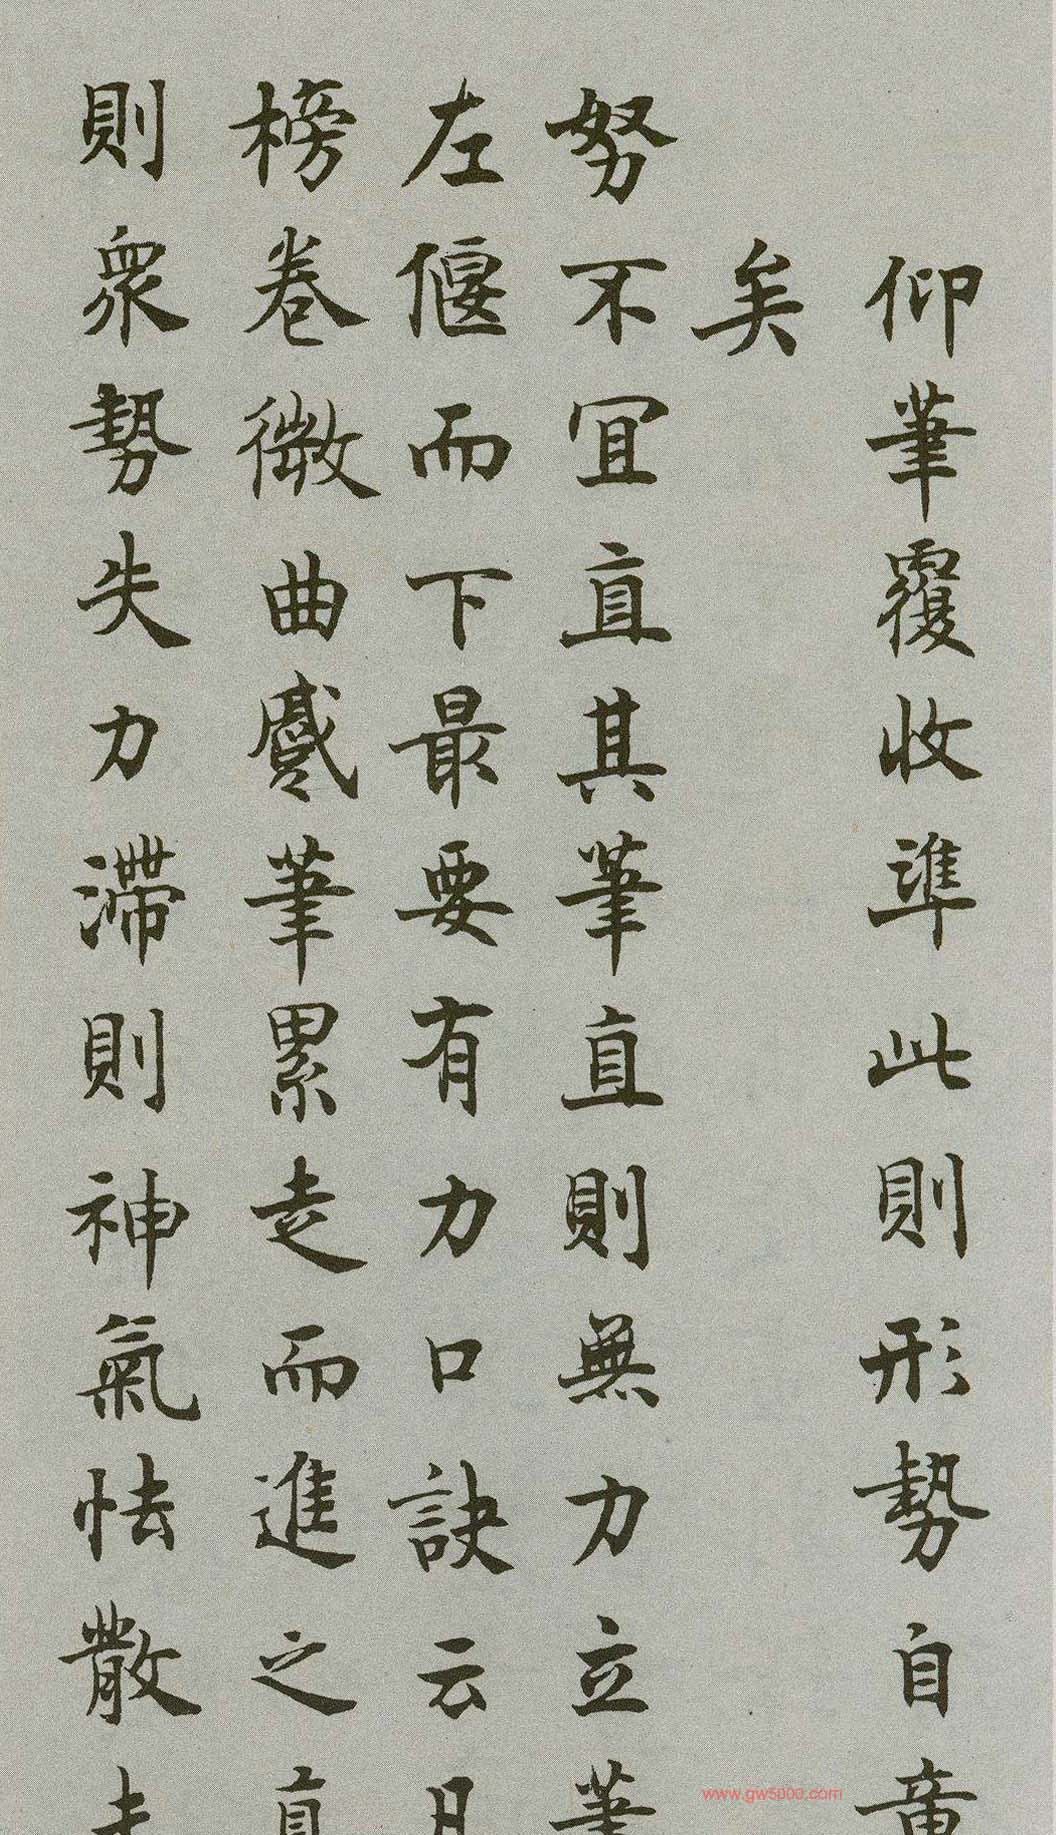 仰筆覆收準此則形勢自
矣
努不宜直其筆直則無力立筆
左偃而下最要有力口訣云
榜卷微曲蹙筆累走而進之直
則衆勢失力滯則神氣怯散
www.gw5000.com